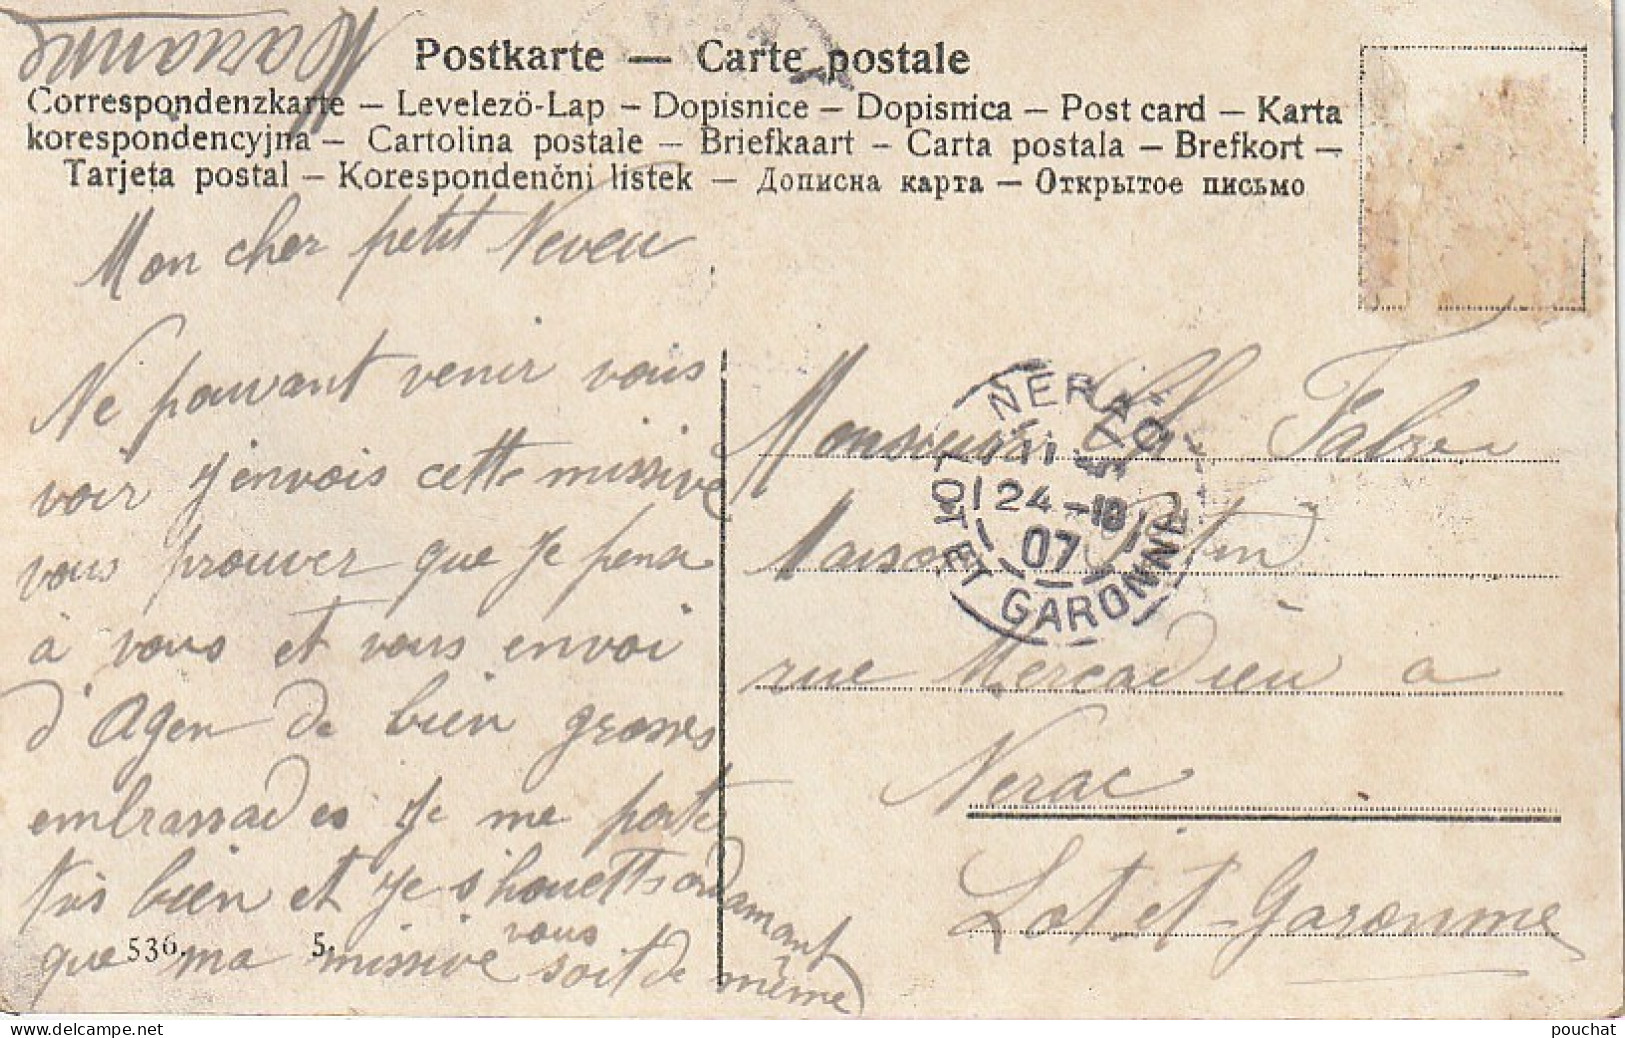 Postkarte — Carte postale
Correspondenzkarte – Levelezö-Lap – Dopisnice – Dopisnica – Post card – Karta
korespondencyjna – Cartolina postale – Briefkaart – Carta postala – Brefkort –
Tarjeta postal – Korespondenčni listek – Дописна карта – Открытое письмо
Mon cher petit Neveu
Ne pouvant venir vous
voir j'envois cette missive
vous prouver que je pense
à vous et vous envoi
d'Agen de bien grosses
embrassades Je me porte
très bien et je souhette ardamant
que ma missive vous soit de même
536. 5.
NERAC
24-10
07
LOT ET GARONNE
Monsieur Ch Fabre
Maison
rue Mercadieu a
Nerac
Lot et Garonne
pouchat
www.delcampe.net